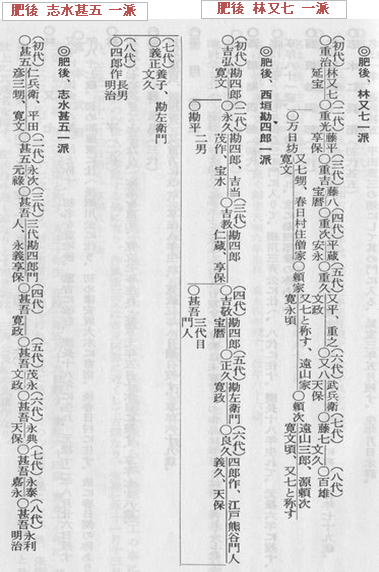 肥後 林又七 一派
肥後 志水甚五 一派
◎肥後、林又七一派
(初代)林又七(二代)藤平(三代)藤八(四代)平蔵(五代)又平、重之(六代)武兵衛(七代)(八代)
○重治 延宝 ○重光 享保 ○重吉 宝暦 ○重次 安永 ○重久 文政 ○又八 天保 ○藤七 文久 ○百雄
又七甥、春日村住僧家 又七と称す、遠山家 遠山三郎、源頼次
○万日坊 寛文 ○頼家 寛永頃 ○頼次 寛文頃、又七と称す
◎肥後、西垣勘四郎一派
(初代)勘四郎(二代)勘四郎、吉当(三代)勘四郎(四代)勘四郎(五代)勘左衛門(六代)四郎作、江戸熊谷門人
○吉弘 寛文 ○永久 茂作、宝水 ○吉教 仁蔵、享保 ○吉敬 宝暦 ○正久 寛政 ○良久 義久、天保
二男 三代目
○勘平 ○甚吾 門人
(七代)養子、勘左衛門
○義正 文久
(八代)長男
○四郎作 明治
◎肥後、志水甚五一派
(初代)仁兵衛、平田(二代)永次(三代)三代勘四郎門(四代)(五代)茂永(六代)永典(七代)永泰(八代)永利
○甚五 彦三甥、寛文 ○甚五 元禄 ○甚吾 人、永義享保 ○甚吾 寛政 ○甚吾 文政 ○甚吾 天保 ○甚吾 嘉永 ○甚吾 明治